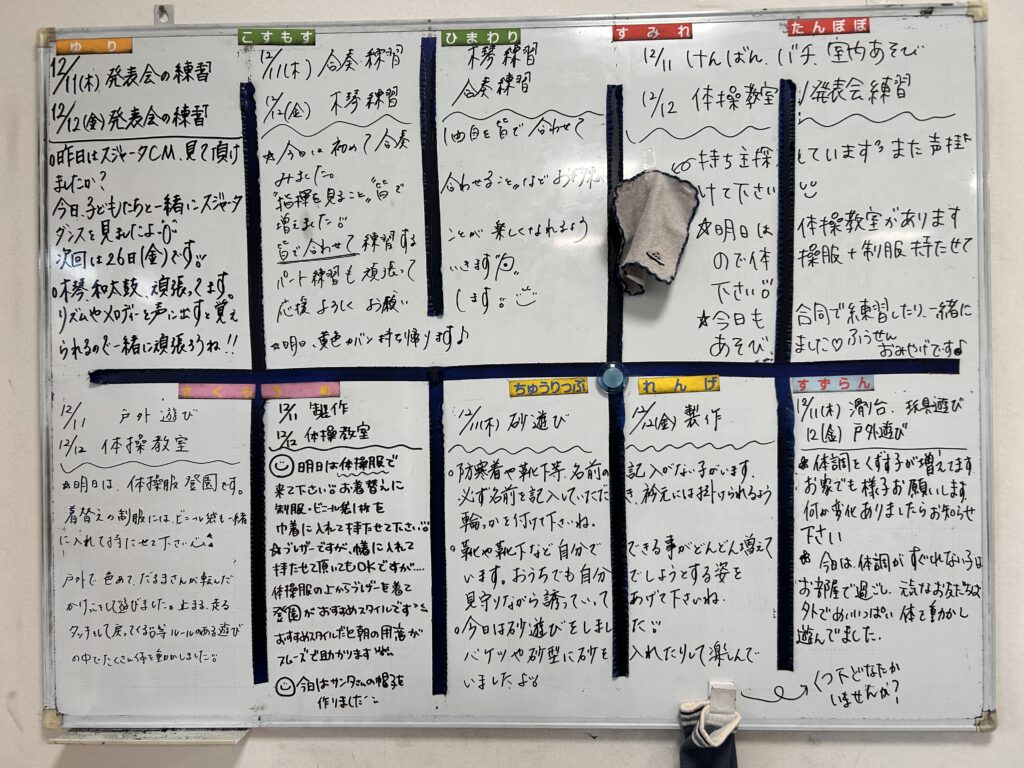 ゆり
12/11(木)発表会の練習
12/12(金)発表会の練習
○昨日はスジャータCM、見て頂け
ましたか？
今日、子どもたちと一緒にスジャータ
ダンスを見ましたよ
次回は26日(金)です。
○木琴、和太鼓、頑張ってます。
リズムやメロディーを声に出すと覚え
られるので一緒に頑張ろうね!!
こすもす
12/11(木) 合奏練習
12/12(金) 木琴練習
☆今日は初めて合奏
みました。
指揮を見ること 皆で
増えました
皆で合わせて練習する
パート練習も頑張って
応援よろしくお願い
☆明日、黄色カバン持ち帰ります♪
ひまわり
木琴練習
合奏練習
1曲目を皆で合わせて
合わせること
ことが楽しくなれるよう
いきます
します。
すみれ
たんぽぽ
12/11 けんばん、バチ、室内あそび
12/12 体操教室 / 発表会練習
持ち主探しています また声掛
けて下さい
☆明日は体操教室があります
ので体操服+制服持たせて
下さい
☆今日も合同で練習したり、一緒に
あそびました♡ ふうせん
おみやげです♪
さくら
12/11 戸外遊び
12/12 体操教室
☆明日は、体操服登園です。
着替えの制服にはビニール袋も一緒
に入れて持たせて下さい
戸外で色おて、だるまさんが転んだ
かけっこをして遊びました。止まる、走る
タッチして戻ってくる等ルールのある遊び
の中でたくさん体を動かしました
うめ
12/11 製作
12/12 体操教室
明日は体操服で
来て下さい お着替えに
制服・ビニール袋1枚を
巾着に入れて持たせて下さい
☆ブレザーですが、幡に入れて
持たせて頂いてもOKですが…
体操服の上からブレザーを着て
登園がおすすめスタイルです
おすすめスタイルだと朝の用意が
スムーズで助かります
今日はサンタさんの帽子を
作りました
ちゅうりっぷ
れんげ
12/11(木) 砂遊び
12/12(金) 製作
○防寒着や靴下等、名前の記入がない子がいます。
必ず名前を記入していただき、衿元には掛けられるよう
輪っかを付けて下さいね。
○靴や靴下など自分でできる事がどんどん増えて
います。おうちでも自分でしようとする姿を
見守りながら誘っていってあげて下さいね。
○今日は砂遊びをしました
バケツや砂型に砂を入れたりして楽しんで
いましたよ
すずらん
12/11(木) 滑り台、玩具遊び
12(金) 戸外遊び
☆体調をくずす子が増えてます
お家でも様子お願いします
何か変化ありましたらお知らせ
下さい
☆今日は、体調がすぐれない子は
お部屋で過ごし、元気なお友だちは
外でめいいっぱい体を動かし
遊んでました。
くつ下どなたか
いませんか？